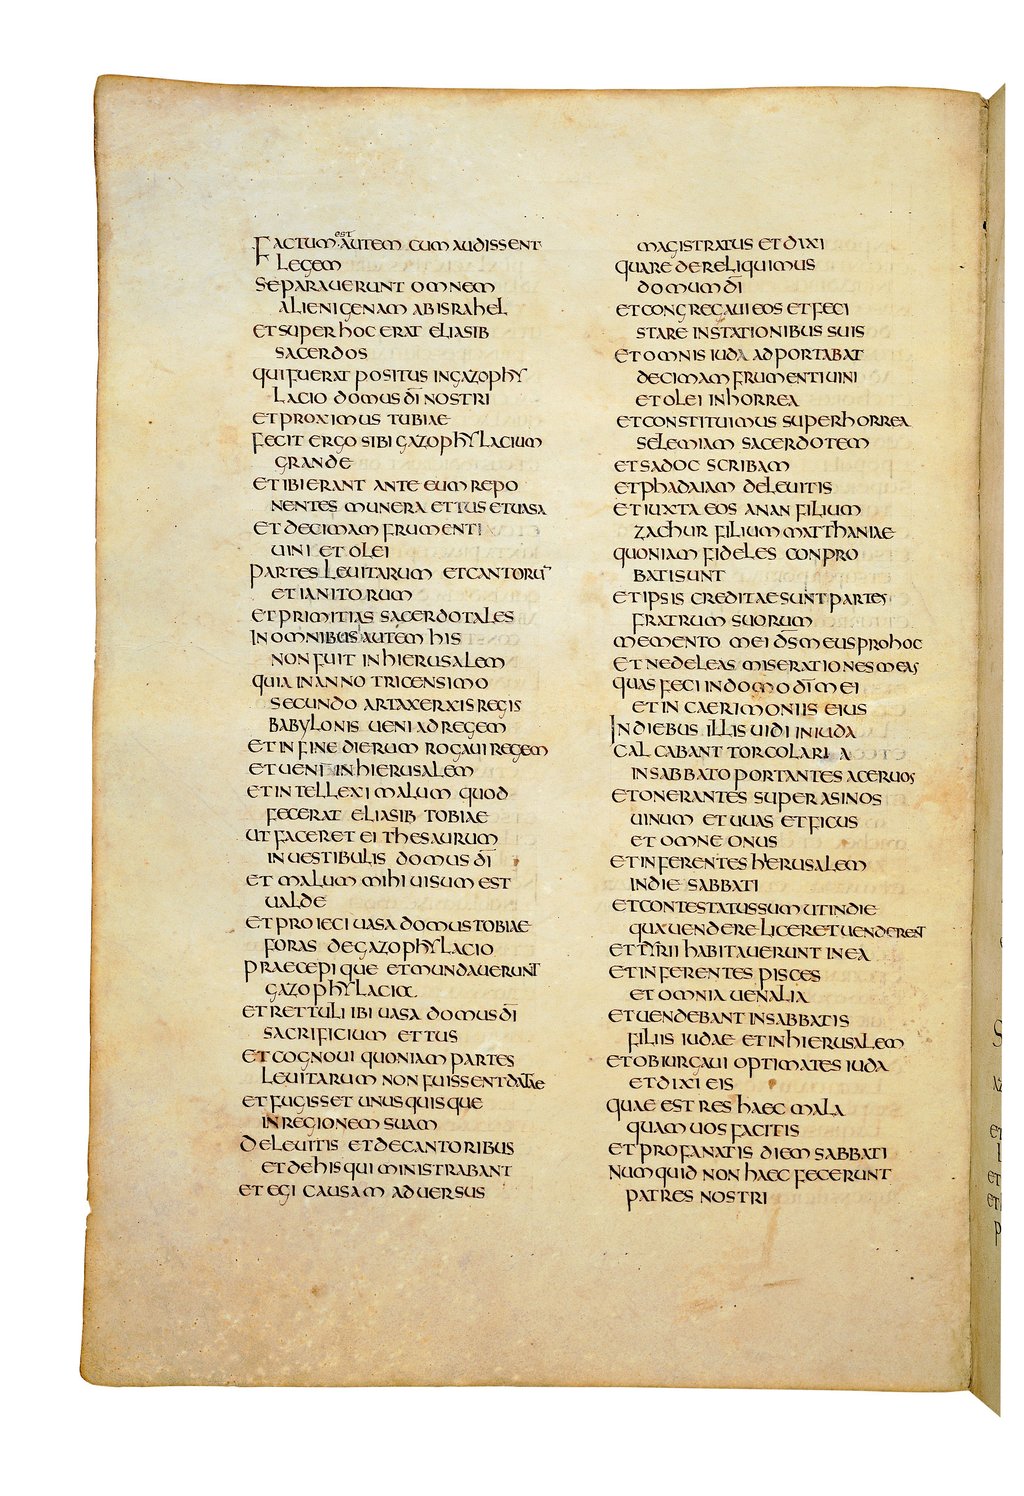 est
Factum autem cum audissent
legem
separauerunt omnem
alienigenam ab israhel
et super hoc erat eliasib
sacerdos
qui fuerat positus in gazophy
lacio domus dī nostri
et proximus tubiae
fecit ergo sibi gazophylacium
grande
et ibi erant ante eum repo
nentes munera et tus et uasa
et decimam frumenti
uini et olei
partes leuitarum et cantorū
et ianitorum
et primitias sacerdotales
in omnibus autem his
non fuit in hierusalem
quia in anno tricensimo
secundo artaxerxis regis
babylonis ueni ad regem
et in fine dierum rogaui regem
et ueni in hierusalem
et intellexi malum quod
fecerat eliasib tobiae
ut faceret ei thesaurum
in uestibulis domus dī
et malum mihi uisum est
ualde
et proieci uasa domus tobiae
foras de gazophylacio
praecepique et mundauerunt
gazophylacia
et rettuli ibi uasa domus dī
sacrificium et tus
et cognoui quoniam partes
leuitarum non fuissent datae
et fugisset unusquisque
in regionem suam
de leuitis et de cantoribus
et de his qui ministrabant
et egi causam aduersus
magistratus et dixi
quare dereliquimus
domum dī
et congregaui eos et feci
stare in stationibus suis
et omnis iuda adportabat
decimam frumenti uini
et olei in horrea
et constituimus super horrea
selemiam sacerdotem
et sadoc scribam
et phadaiam de leuitis
et iuxta eos anan filium
zachur filium matthaniae
quoniam fideles conpro
bati sunt
et ipsis creditae sunt partes
fratrum suorum
memento mei dsˉ meus pro hoc
et ne deleas miserationes meas
quas feci in domo dī mei
et in caerimoniis eius
In diebus illis uidi in iuda
calcabant torcolaria
in sabbato portantes aceruos
et onerantes super asinos
uinum et uuas et ficus
et omne onus
et inferentes hierusalem
in die sabbati
et contestatus sum ut in die
qua uendere liceret uenderent
et tyrii habitauerunt in ea
et inferentes pisces
et omnia uenalia
et uendebant in sabbatis
filiis iudae et in hierusalem
et obiurgaui optimates iuda
et dixi eis
quae est res haec mala
quam uos facitis
et profanatis diem sabbati
numquid non haec fecerunt
patres nostri